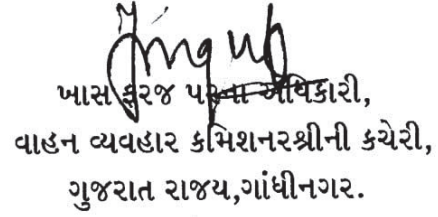 ખાસ ફરજ પરના અધિકારી,
વાહન વ્યવહાર કમિશનરશ્રીની કચેરી,
ગુજરાત રાજય,ગાંધીનગર.